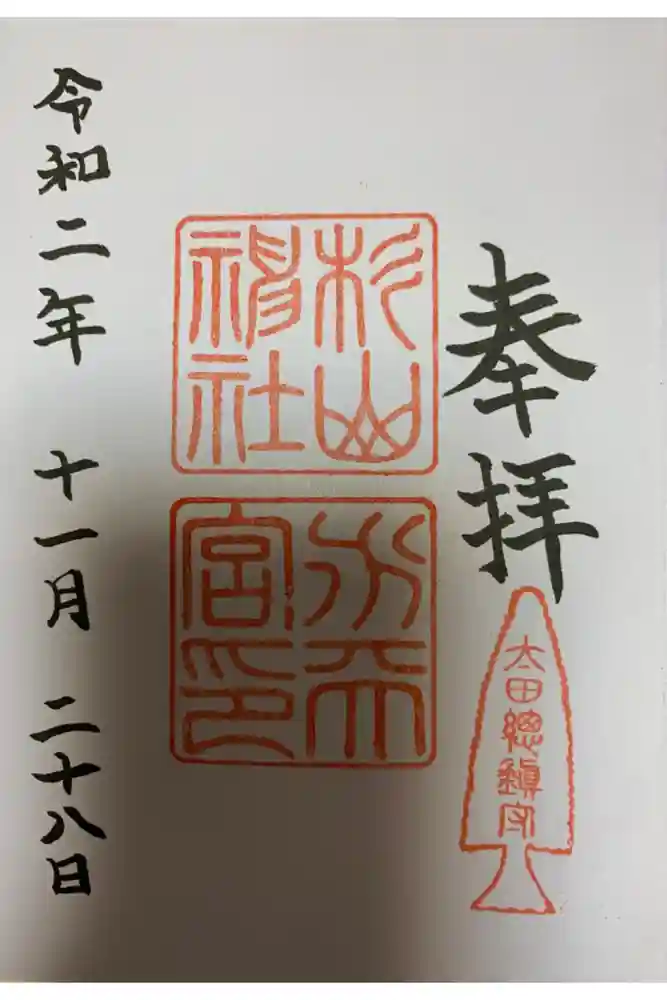 奉拝
太田總鎮守
杉山
神社
水天
宮印
令和二年 十一月 二十八日